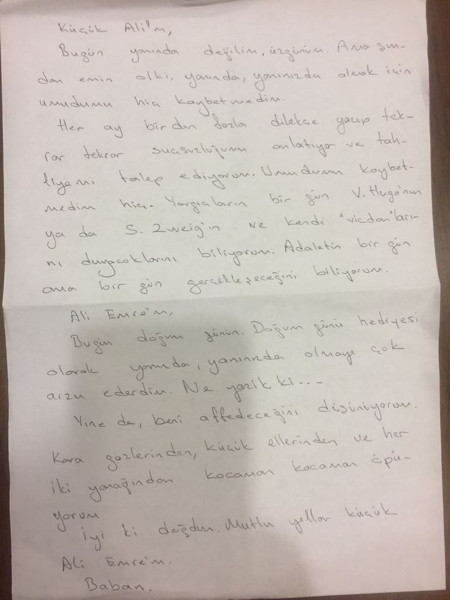 Küçük Ali'm,
Bugün yanında değilim, üzgünüm. Ama şun-
dan emin ol ki, yanında, yanınızda olmak için
umudumu hiç kaybetmedim.
Her ay birden fazla dilekçe yazıp tek-
rar tekrar suçsuzluğumu anlatıyor ve tah-
liyemi talep ediyorum. Umudumu kaybet-
medim hiç. Yargıçların bir gün V. Hugo'nun
ya da S. Zweig'in ve kendi "vicdan"ları-
nı duyacaklarını biliyorum. Adaletin bir gün
ama bir gün gerçekleşeceğini biliyorum.
Ali Emre'm,
Bugün doğum günün. Doğum günü hediyesi
olarak yanında, yanınızda olmayı çok
arzu ederdim. Ne yazık ki...
Yine de, beni affedeceğini düşünüyorum.
Kara gözlerinden, küçük ellerinden ve her
iki yanağından kocaman kocaman öpü-
yorum.
İyi ki doğdun. Mutlu yıllar küçük
Ali Emre'm.
Baban.